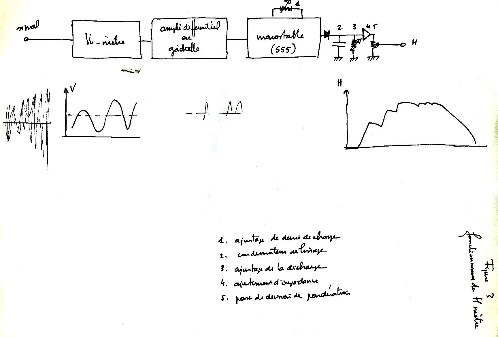 signal
V-mètre
ampli differentiel
ou
monostable
(555)
1
2 3 4 5
H
V
H
1. ajustage de de
2. condensateur de
3. ajustage de la decharge
4. ajustement d'impedance
5. pont de de ponderation
Figure 3
fonctionnement du H mètre